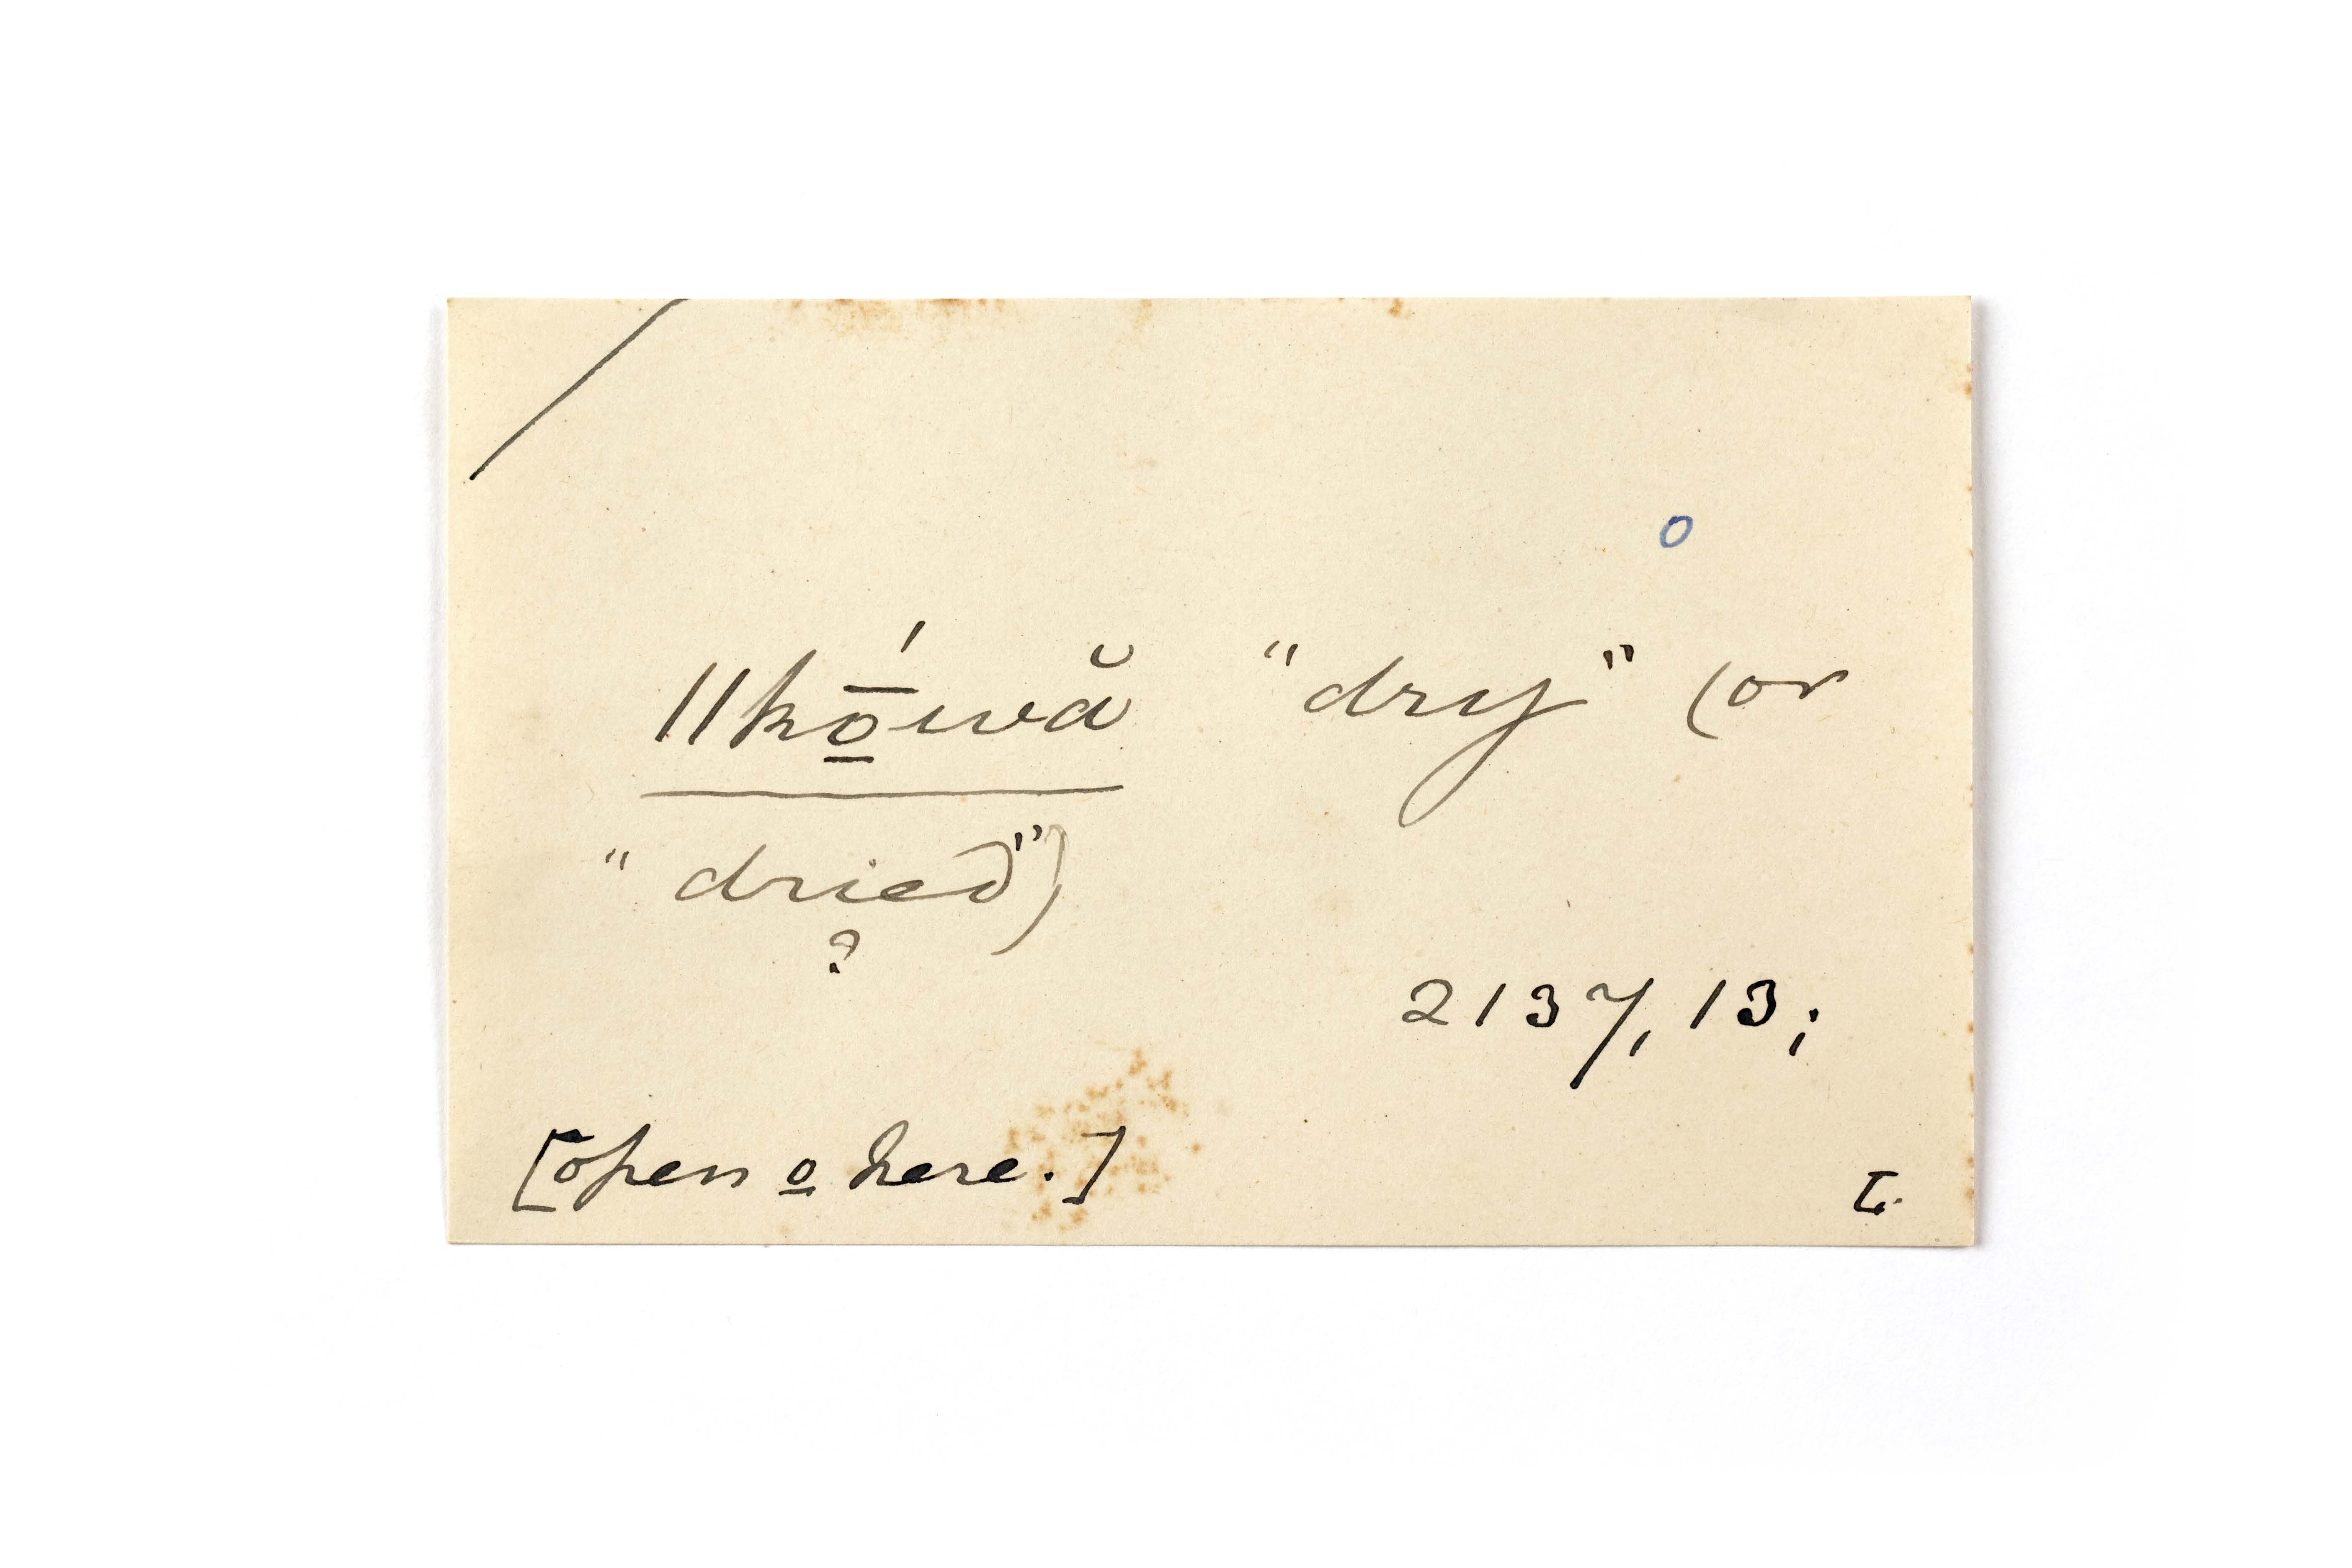 o
ǁkṓ̱wă "dry" (or
"dried")
?
2137, 13;
[open o̱ here.]
L.